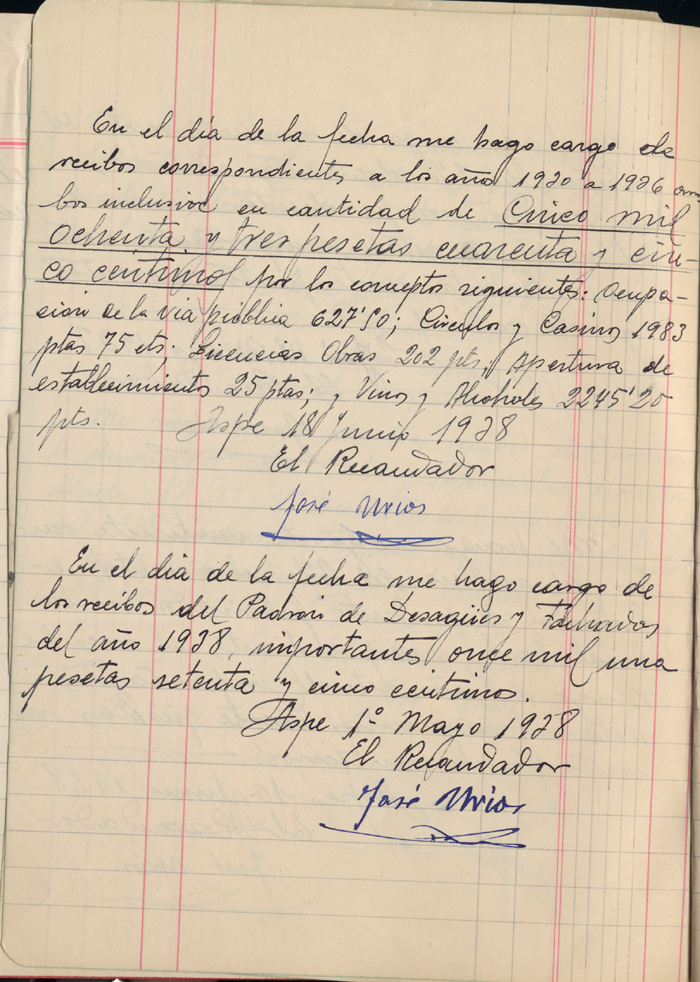 En el día de la fecha me hago cargo de
recibos correspondientes a los año 1930 a 1936 am-
bos inclusive en cantidad de Cinco mil
Ochenta y tres pesetas cuarenta y cin-
co centimos por los conceptos siguientes: Ocupa-
cion de la via publica 627'50; Circulos y Casinos 1983
ptas 75 cts; Licencias Obras 202 pts, Apertura de
establecimientos 25 ptas; y Vinos y Alcoholes 2245'20
pts. Aspe 18 Junio 1938
El Recaudador
José Urios
En el día de la fecha me hago cargo de
los recibos del Padron de Desagües y Fachadas
del año 1938, importantes once mil una
pesetas setenta y cinco centimos.
Aspe 1º Mayo 1938
El Recaudador
José Urios